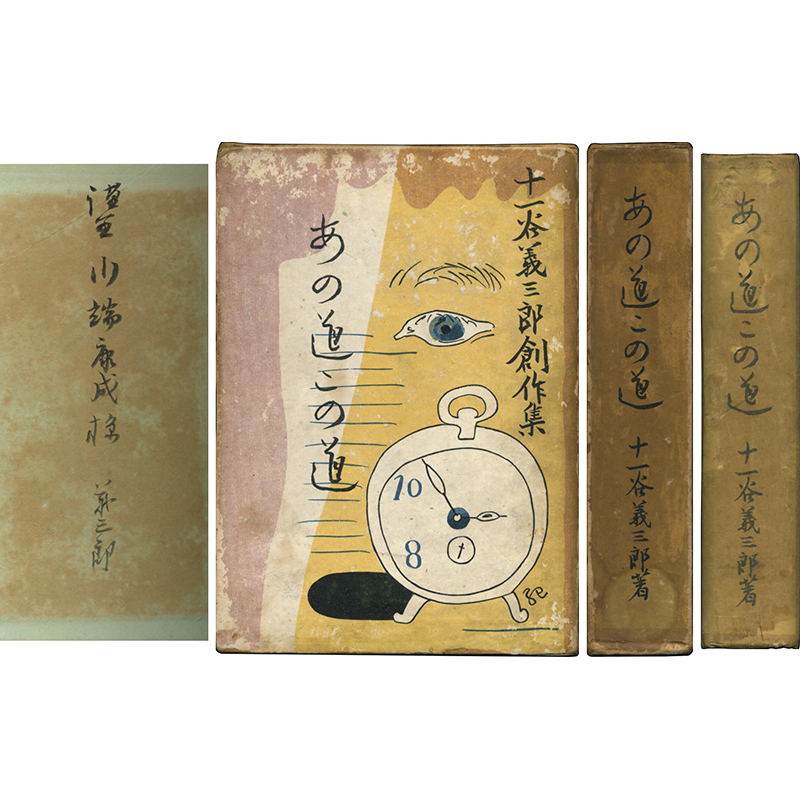 謹呈
川端康成様
義三郎
十一谷義三郎創作集
あの道この道
10
8
あの道この道
十一谷義三郎著
あの道この道
十一谷義三郎著